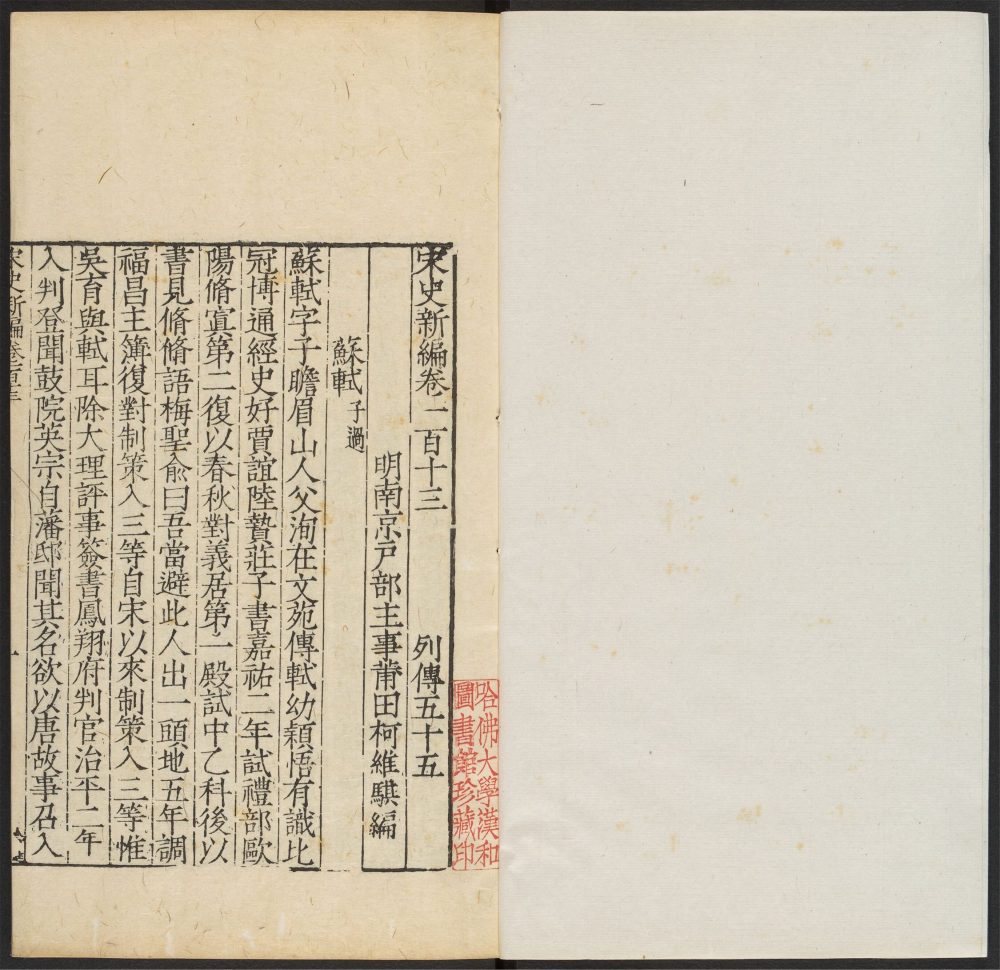 宋史新編卷一百十三　列傳五十五
明南京戶部主事莆田柯維騏編
蘇軾子過
蘇軾字子瞻眉山人父洵在文苑傳軾幼穎悟有識比
冠博通經史好賈誼陸贄莊子書嘉祐二年試禮部歐
陽脩寘第二復以春秋對義居第一殿試中乙科後以
書見脩脩語梅聖俞曰吾當避此人出一頭地五年調
福昌主簿復對制策入三等自宋以來制策入三等惟
吳育與軾耳除大理評事簽書鳳翔府判官治平二年
入判登聞鼓院英宗自藩邸聞其名欲以唐故事召入
宋史新編卷
一
哈佛大學漢和
圖書館珍藏印